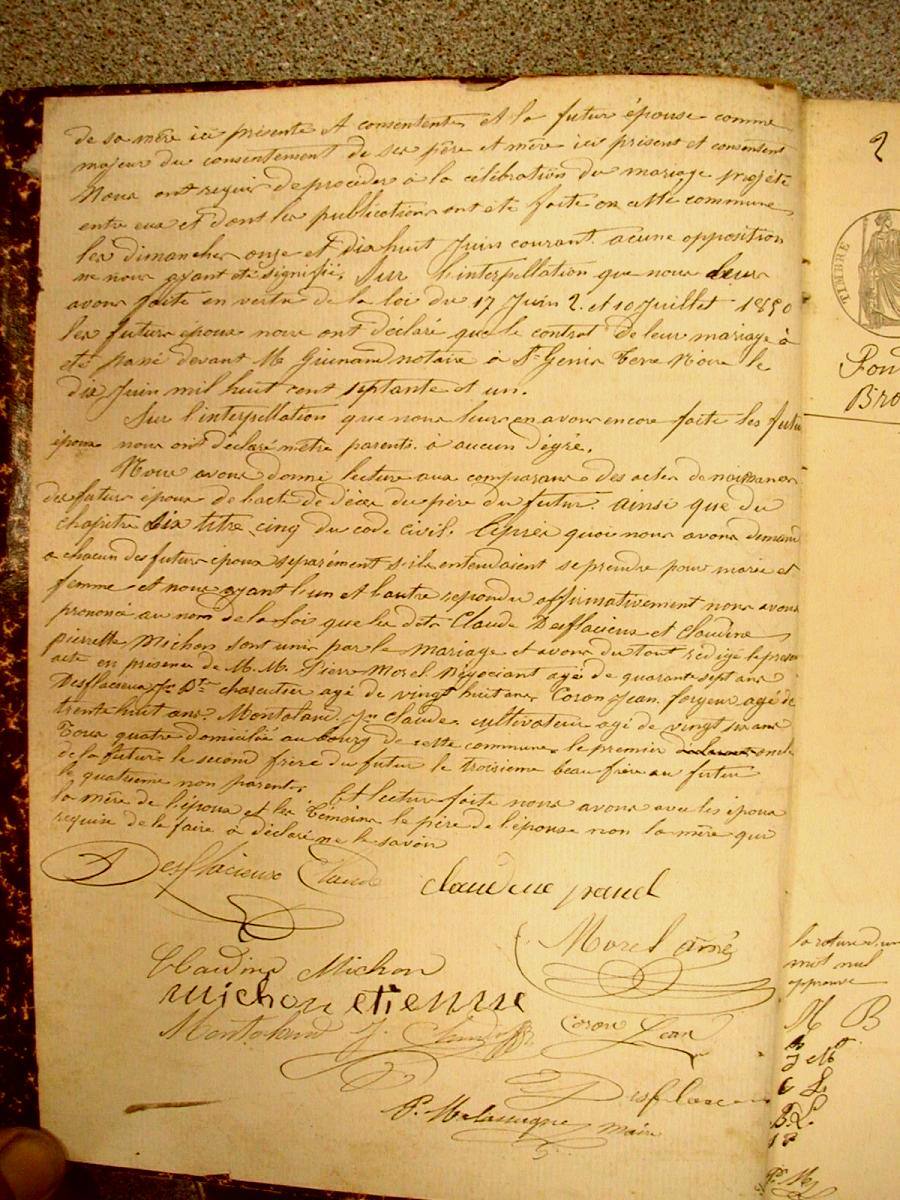 de sa mère ici présente et consentente et la futur épouse comme
majeur du consentement de ses père et mère ici présent et consentent
Nous ont requis de procéder à la célébration du mariage projété
entre eux et dont les publications ont été faite en cette commune
les dimanches onze et dix huit Juin courant. aucune opposition
ne nous ayant été signifié. Sur l'interpellation que nous leurs
avons faite en vertu de la loi du 17 Juin 2. et 10 Juillet 1850
les futurs époux nous ont déclaré que le contrat de leur mariage à
été passé devant Me notaire à St Genis Terre Noire le
dix Juin mil huit cent septante et un.
Sur l'interpellation que nous leurs en avons encore faite les futur
époux nous ont déclaré n'être parents à aucun dégré.
Nous avons donné lecture aux comparans des actes de naissances
des futurs époux de l'acte de décès du père du futur. ainsi que du
chapitre six titre cinq du code civil. Après quoi nous avons demandé
a chacun des futurs époux séparément s'ils entendaient se prendre pour marie et
femme et nous ayant l'un et l'autre répondu affirmativement nous avons
prononcé au nom de la loi que les dits Claude Desflacieux et Claudine
pierrette Michon sont unis par le mariage et avons du tout rédigé le présent
acte en présence de M. M. Pierre Morel Négociant agé de quarante sept ans
Desflacieux Jn Bte charcutier agé de vingt huit ans, Coron Jean forgeur agé de
trente huit ans. Montoland Jn Claude cultivateur agé de vingt six ans
Tous quatre domicilié au bourg de cette commune le premier oncle
de la future le second frère du futur le troisieme beau frère au futur
le quatrieme non parents. Et lecture faite nous avons avec les époux
la mère de l'époux et les témoins le père de l'épouse non la mère qui
requise de le faire à déclaré ne le savoir
Desflacieux Claude
Morel ainé
Claudine Michon
michon etienne
Montoland J. Claude
Coron Jean
Desflacieux
P. maire
2
TIMBRE
Bro
la rature d'un
mot nul
approuvé
M B